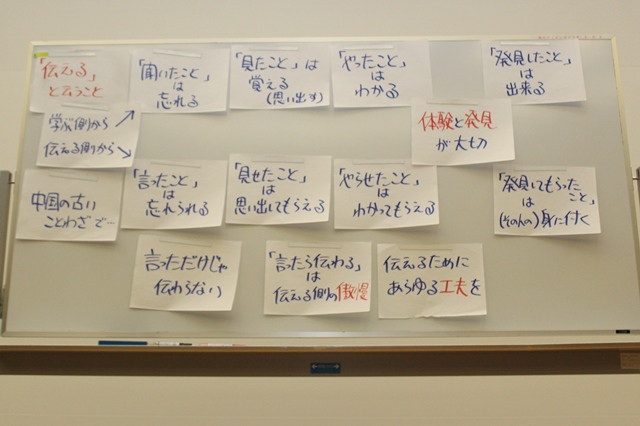 「伝える」
と云うこと
「聞いたこと」
は
忘れる
「見たこと」は
覚える
(思い出す)
「やったこと」
は
わかる
「発見したこと」
は
出来る
学ぶ側から
伝える側から
体験と発見
が大切
中国の古い
ことわざで…
「言ったこと」
は
忘れられる
「見せたこと」
は
思い出してもらえる
「やらせたこと」
は
わかってもらえる
「発見してもらった
こと」
は
(その人の)身に付く
言っただけじゃ
伝わらない
「言ったら伝わる」
は
伝える側の傲慢
伝えるために
あらゆる工夫を